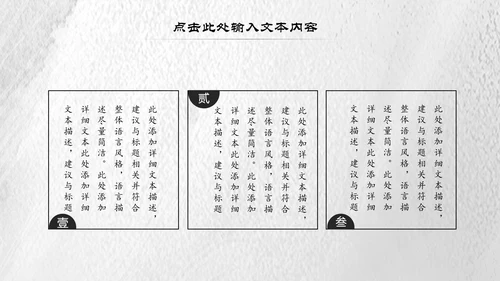 点击此处输入文本内容
壹
此处添加详细文本描述，
建议与标题相关并符合
整体语言风格，语言描
述尽量简洁。此处添加
详细文本此处添加详细
文本描述，建议与标题
贰
此处添加详细文本描述，
建议与标题相关并符合
整体语言风格，语言描
述尽量简洁。此处添加
详细文本此处添加详细
文本描述，建议与标题
叁
此处添加详细文本描述，
建议与标题相关并符合
整体语言风格，语言描
述尽量简洁。此处添加
详细文本此处添加详细
文本描述，建议与标题